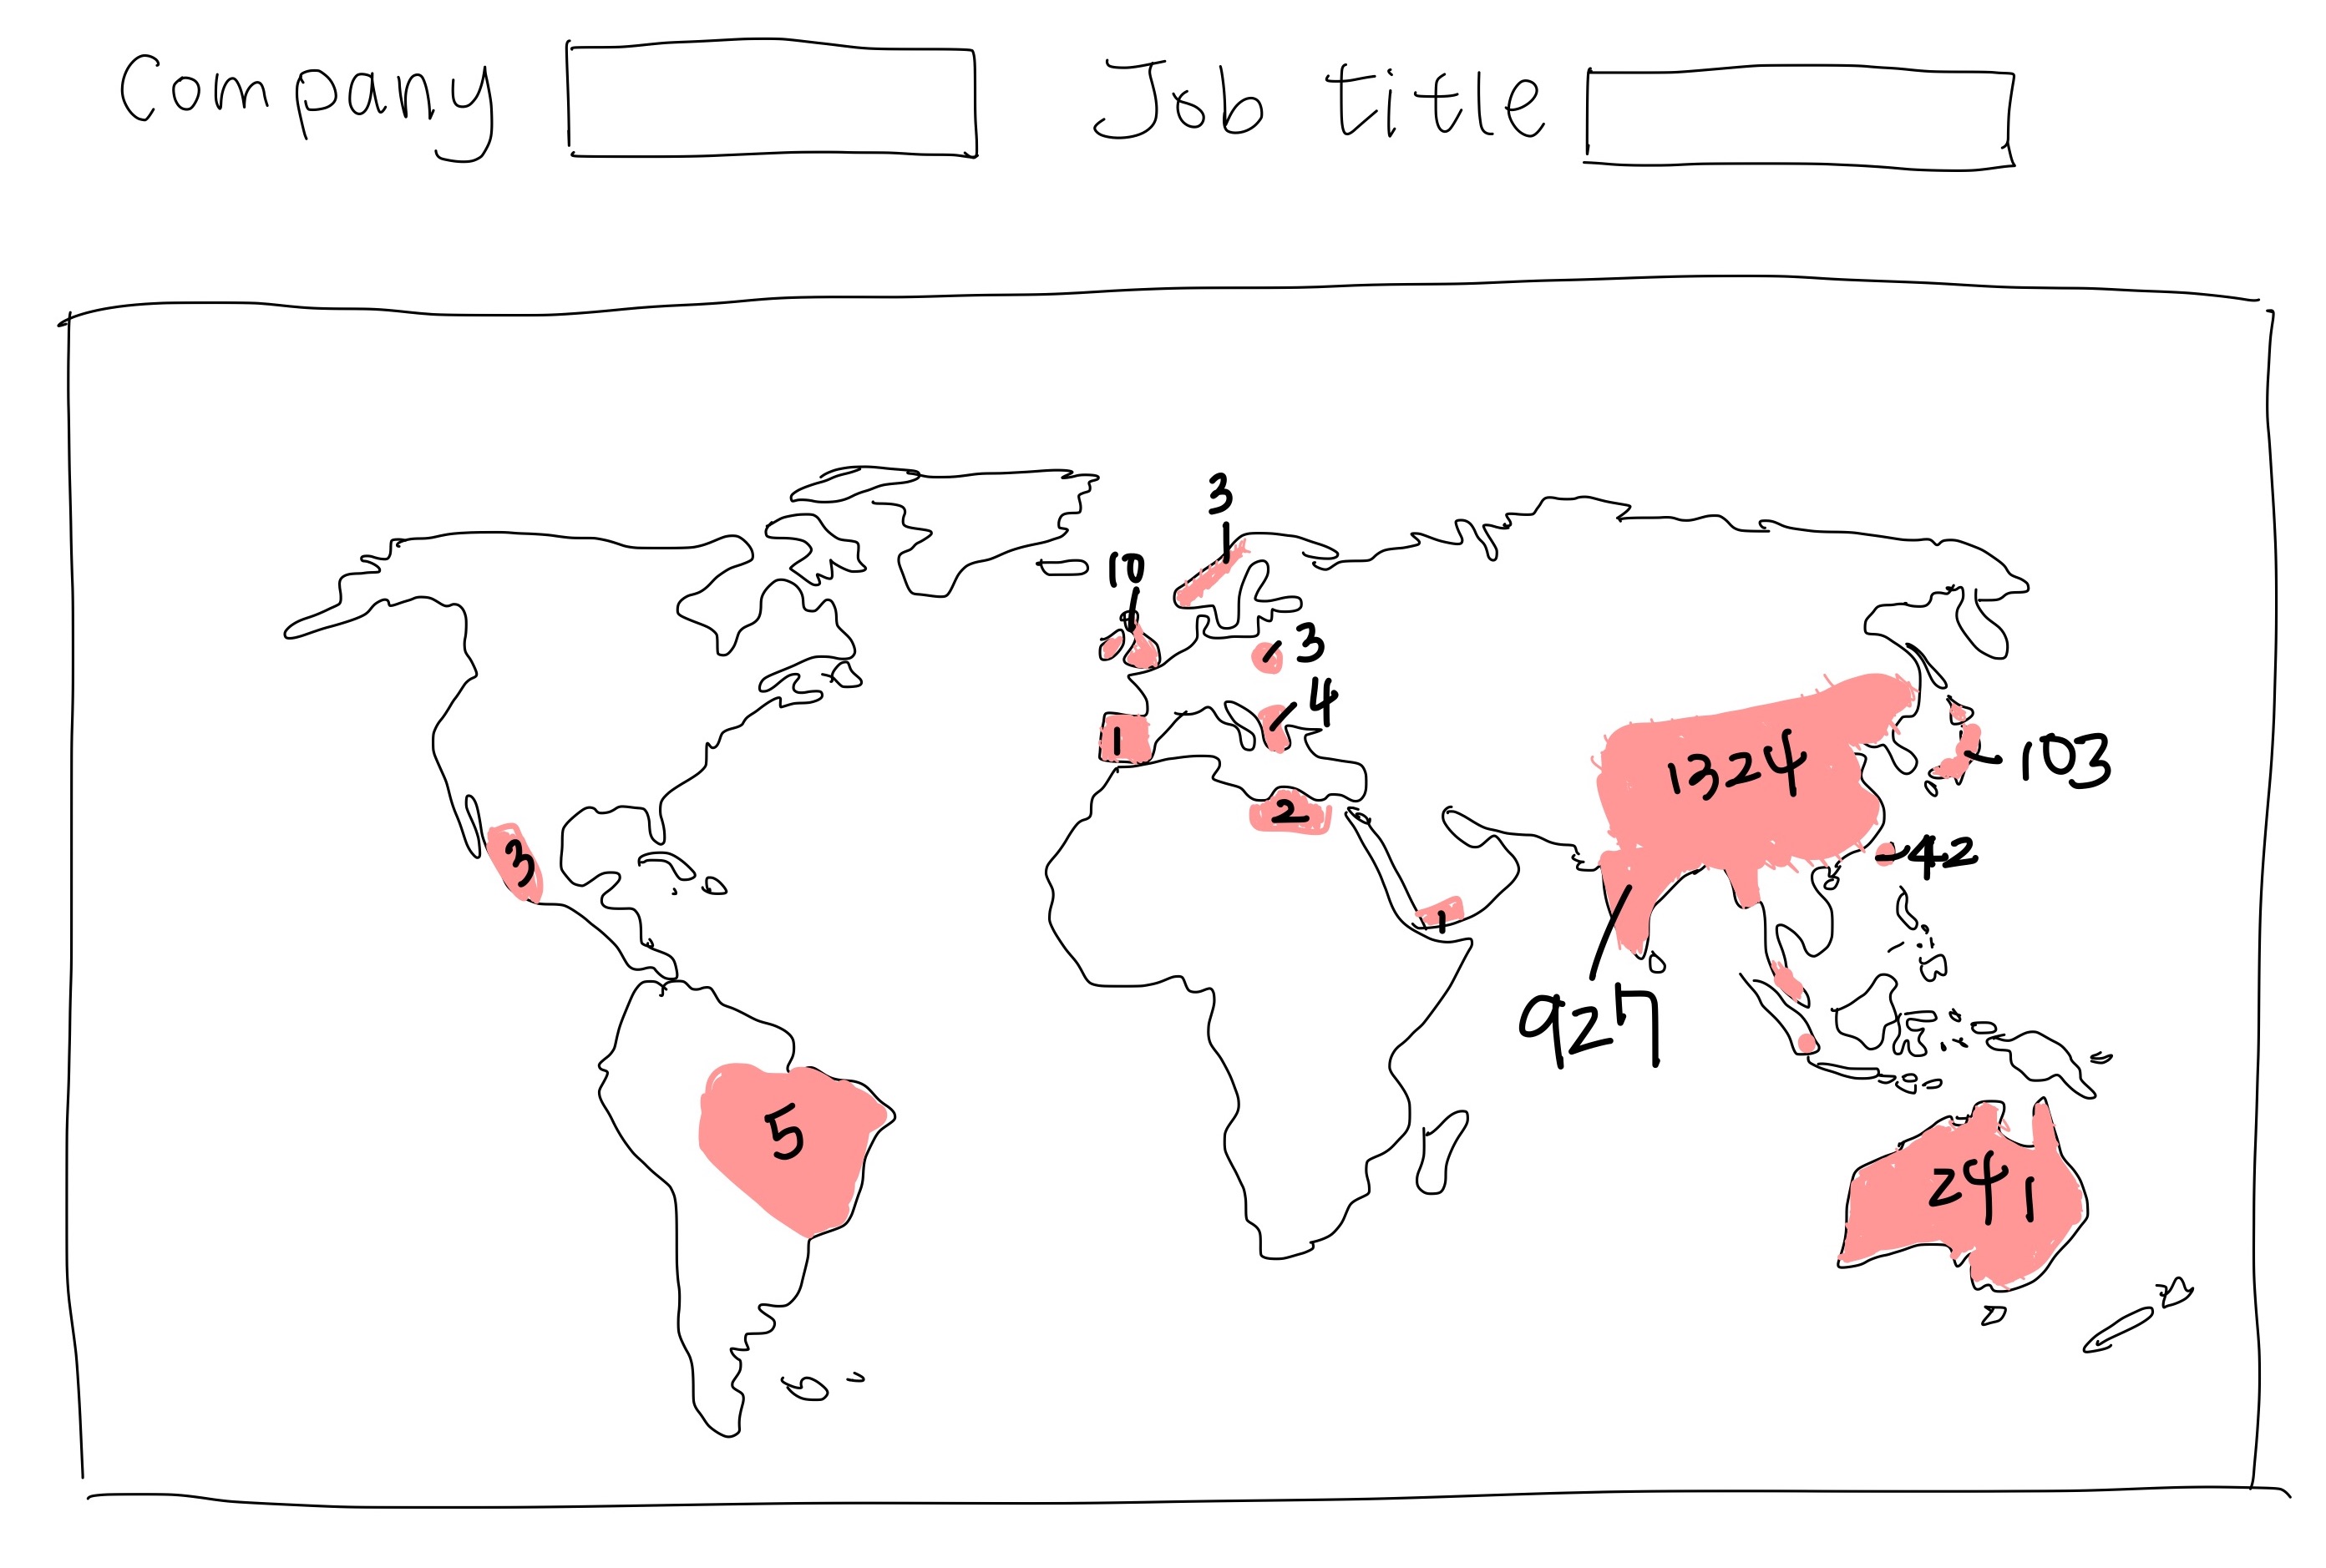 Company
Job title
3
10
3
4
1
1324
103
2
3
42
1
927
5
241